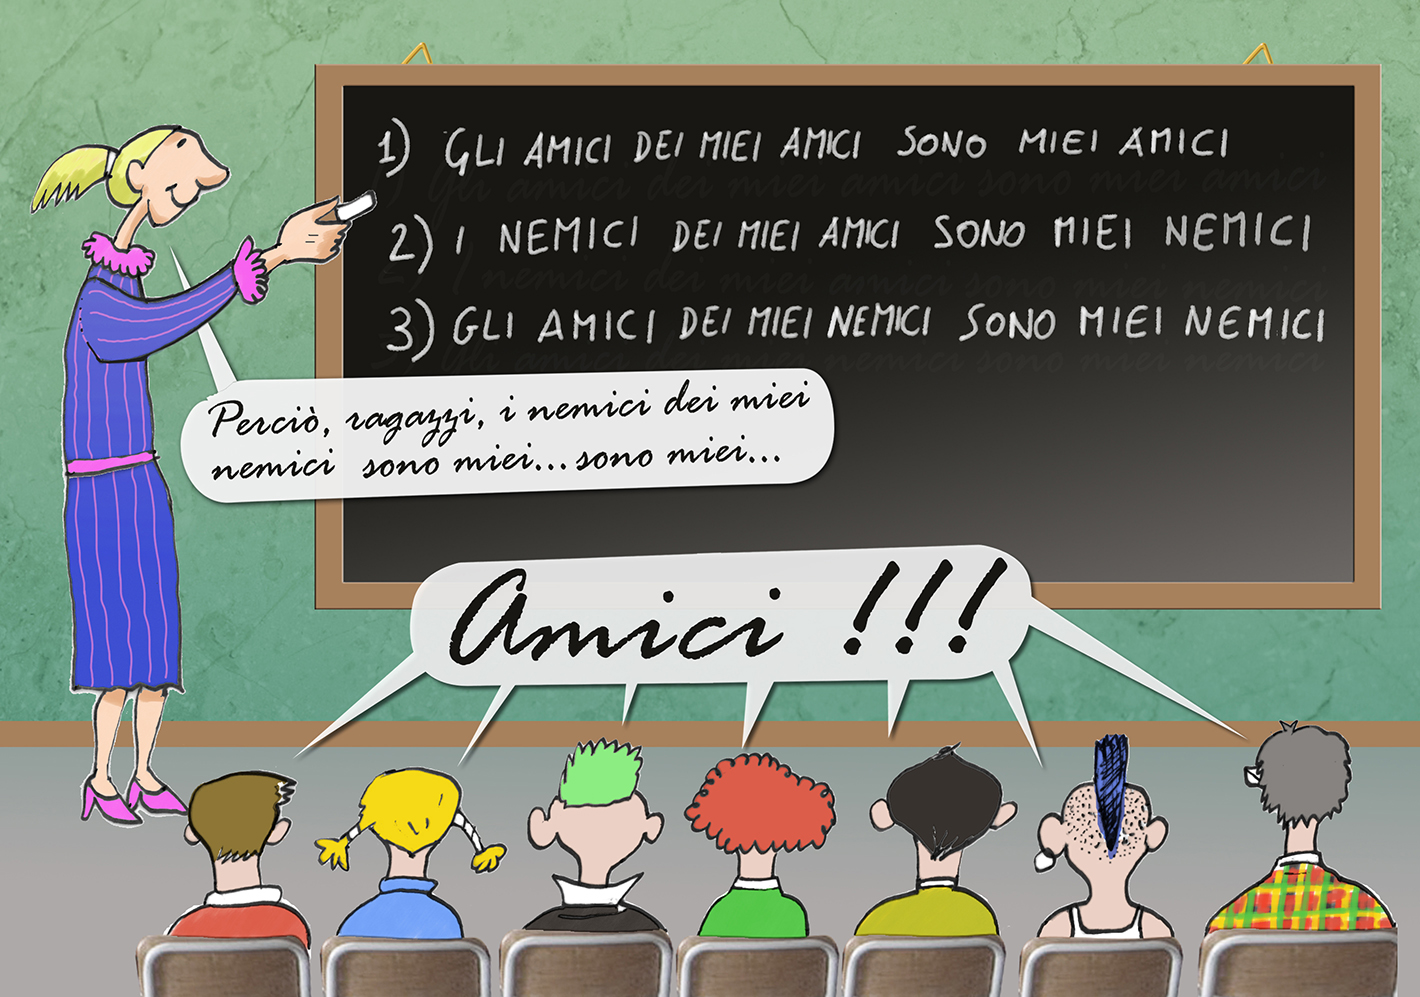 1) GLI AMICI DEI MIEI AMICI SONO MIEI AMICI
2) I NEMICI DEI MIEI AMICI SONO MIEI NEMICI
3) GLI AMICI DEI MIEI NEMICI SONO MIEI NEMICI
Perciò, ragazzi, i nemici dei miei
nemici sono miei...sono miei...
Amici !!!